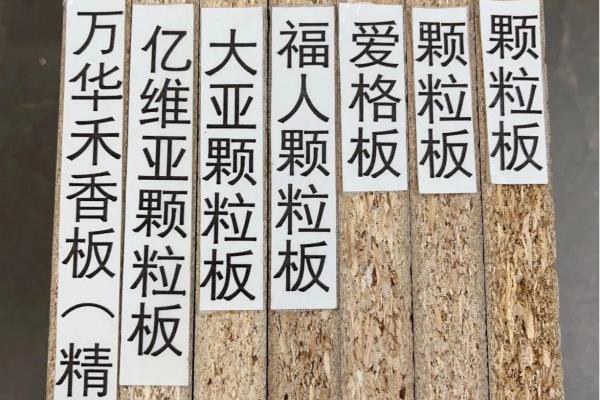 万华禾香板（精
亿维亚颗粒板
大亚颗粒板
福人颗粒板
爱格板
颗粒板
颗粒板